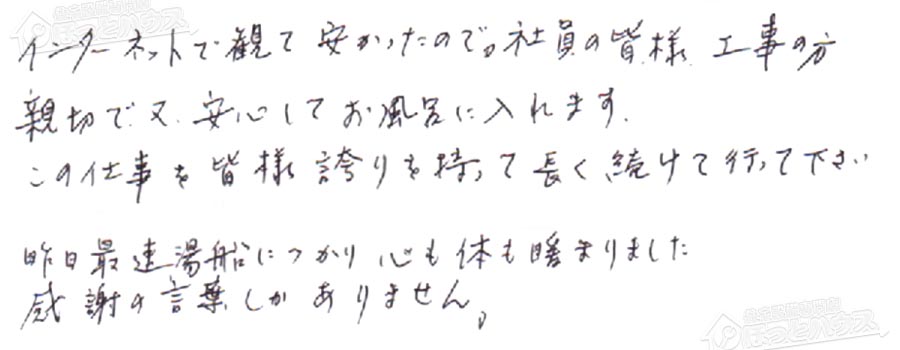 インターネットで観て安かったので。社員の皆様 工事の方
親切で、又、安心してお風呂に入れます。
この仕事を皆様誇りを持って長く続けて行って下さい
昨日最速湯船につかり 心も体も暖まりました
感謝の言葉しかありません。
ほっとハウス
ほっとハウス